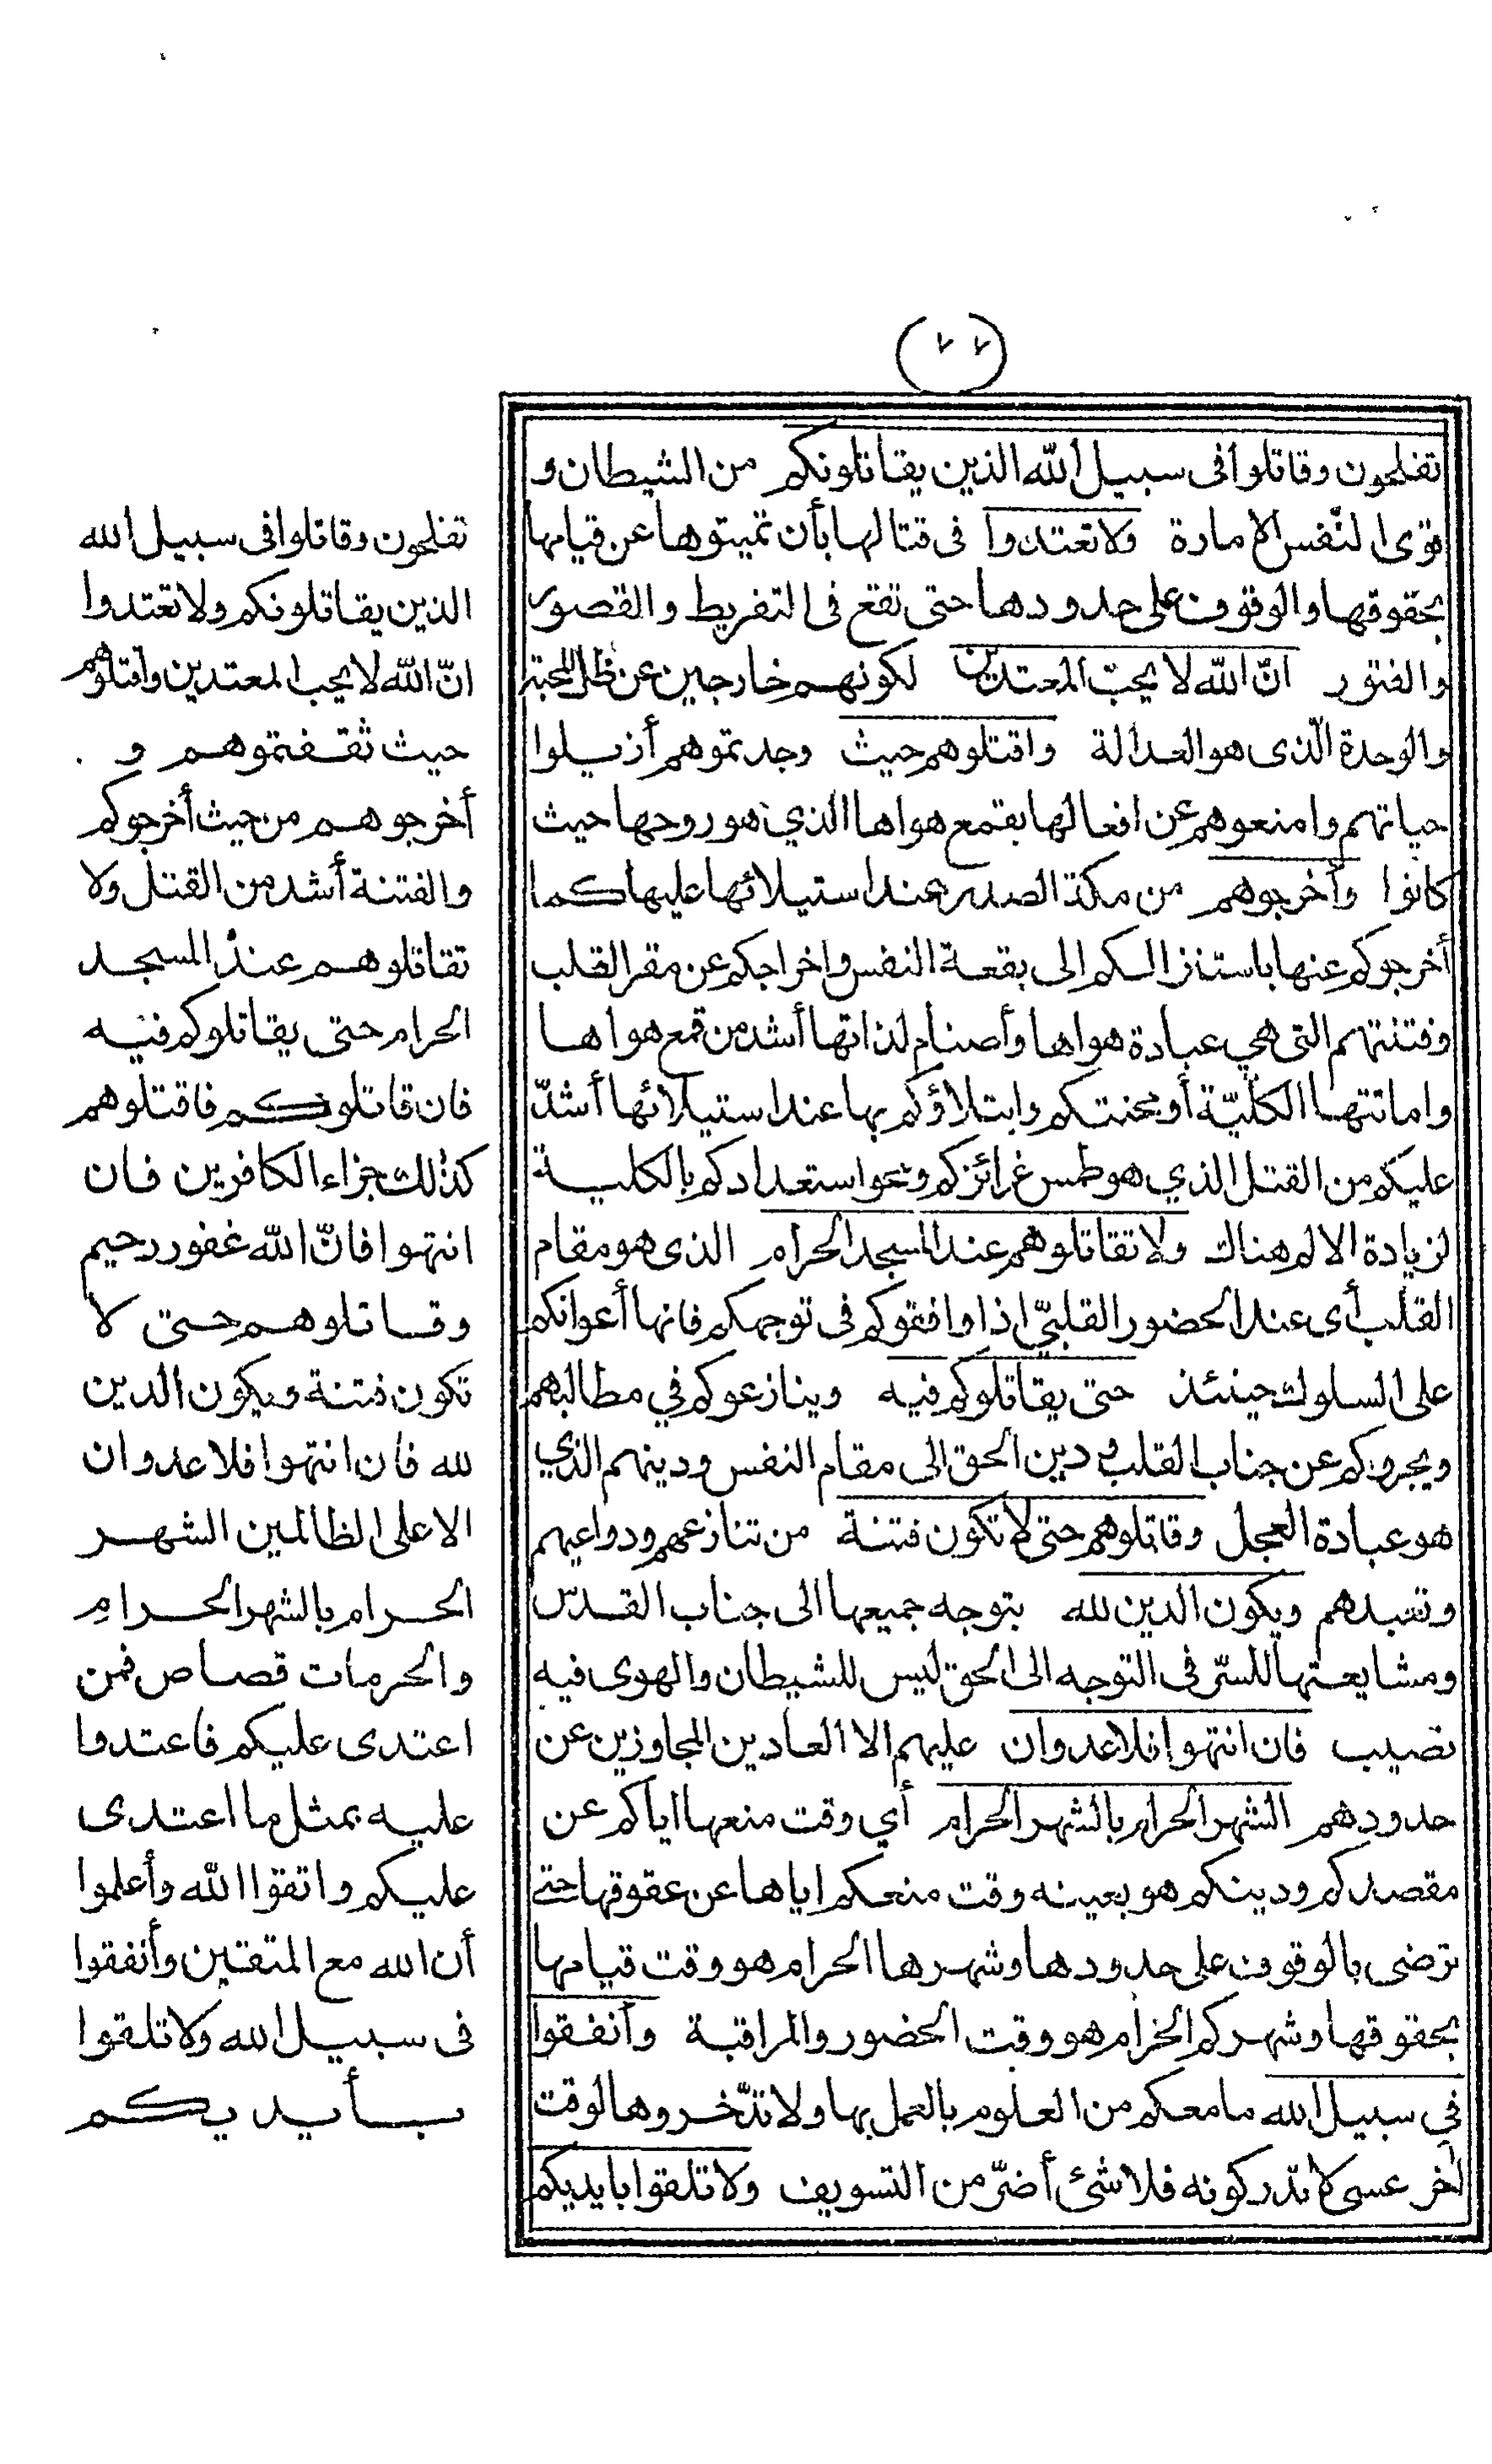 (٧٧)
تفلحون وقاتلوا فى سبيل الله الذين يقاتلونكم من الشيطان و
قوى النّفس الامارة ولا تعتدوا فى قتالها بأن تميتوها عن قيامها
بحقوقها والوقوف على حدودها حتى تقع فى التفريط والقصور
والفتور انّ الله لا يحبّ المعتدين لكونهم خارجين عن ظل المحبة
والوحدة الّذى هو العدالة واقتلوهم حيث وجدتموهم أزيلوا
حياتهم وامنعوهم عن افعالها بقمع هواها الذي هو روحها حيث
كانوا وأخرجوهم من مكة الصدر عند استيلائها عليها كما
أخرجوكم عنها باستنزالكم الى بقعة النفس واخراجكم عن مقر القلب
وفتنتهم التى هي عبادة هواها وأصنام لذاتها أشد من قمع هواها
واماتتها الكلّيّة أو محنتكم وابتلاؤكم بها عند استيلائها أشدّ
عليكم من القتل الذي هو طمس غرائزكم ومحو استعدادكم بالكلية
لزيادة الالم هناك ولا تقاتلوهم عند المسجد الحرام الذى هو مقام
القلب أى عند الحضور القلبىّ اذا وافقوكم فى توجهكم فانها أعوانكم
على السلوك حينئذ حتى يقاتلوكم فيه وينازعوكم في مطالبهم
ويجروكم عن جناب القلب ودين الحق الى مقام النفس ودينهم الذي
هو عبادة العجل وقاتلوهم حتى لا تكون فتنة من تنازعهم ودواعيهم
وتعبدهم ويكون الدين لله بتوجه جميعها الى جناب القدس
ومشايعتها للسرّ فى التوجه الى الحق ليس للشيطان والهوى فيه
نصيب فان انتهوا فلا عدوان عليهم الا العادين المجاوزين عن
حدودهم الشهر الحرام بالشهر الحرام أي وقت منعها اياكم عن
مقصدكم ودينكم هو بعينه وقت منعكم اياها عن عقوقها حتى
ترضى بالوقوف على حدودها وشهرها الحرام هو وقت قيامها
بحقوقها وشهركم الحرام هو وقت الحضور والمراقبة وأنفقوا
في سبيل الله ما معكم من العلوم بالعمل بها ولا تدّخروها لوقت
آخر عسى لا تدركونه فلا شئ أضرّ من التسويف ولا تلقوا بايديكم
تفلحون وقاتلوا فى سبيل الله
الذين يقاتلونكم ولا تعتدوا
انّ الله لا يحب المعتدين واقتلوهم
حيث ثقفتموهم و
أخرجوهم من حيث أخرجوكم
والفتنة أشد من القتل ولا
تقاتلوهم عند المسجد
الحرام حتى يقاتلوكم فيه
فان قاتلوكم فاقتلوهم
كذلك جزاء الكافرين فان
انتهوا فانّ الله غفور رحيم
وقاتلوهم حتى لا
تكون فتنة ويكون الدين
لله فان انتهوا فلا عدوان
الا على الظالمين الشهر
الحرام بالشهر الحرام
والحرمات قصاص فمن
اعتدى عليكم فاعتدوا
عليه بمثل ما اعتدى
عليكم واتقوا الله وأعلموا
أن الله مع المتقين وأنفقوا
فى سبيل الله ولا تلقوا
بأيديكم